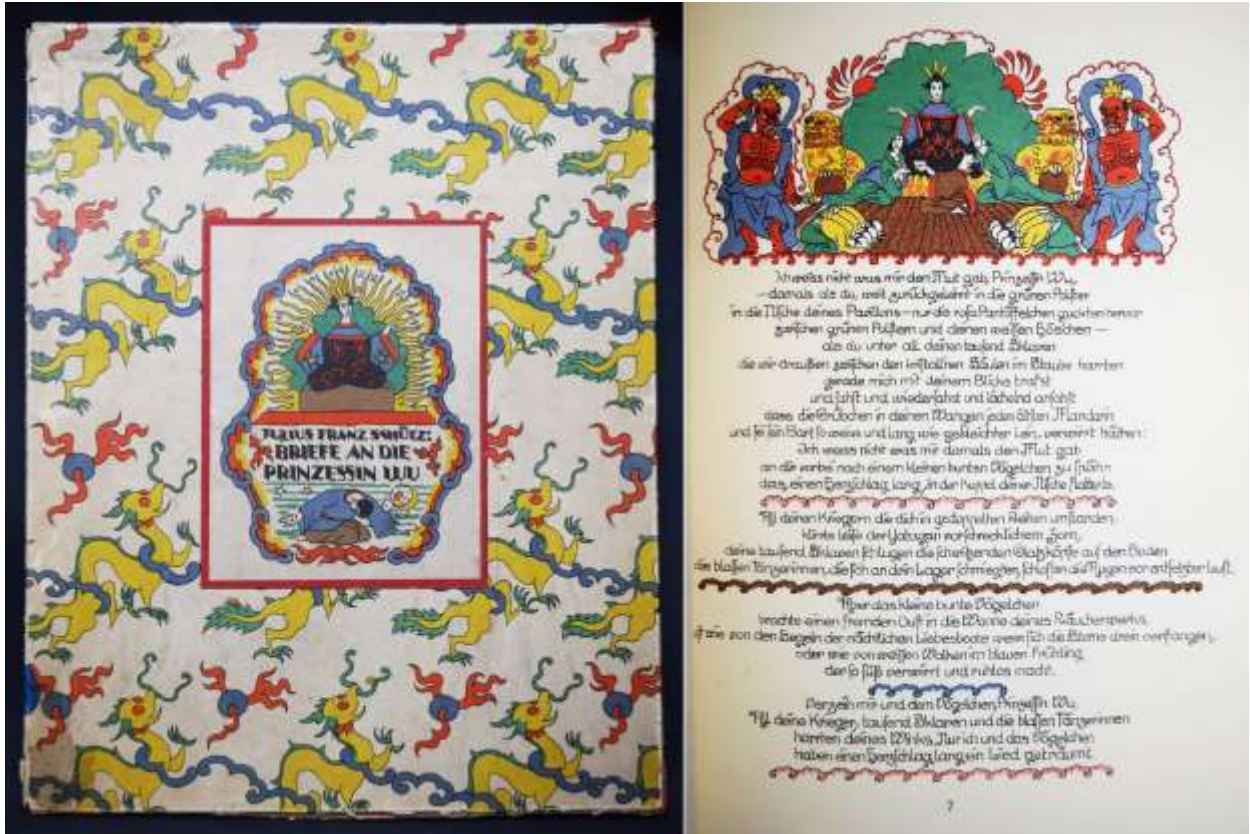 JULIUS FRANZ SCHÜTZ:
BRIEFE AN DIE
PRINZESSIN WU
Ich weiss nicht was mir den Mut gab, Prinzessin Wu,
—damals als du, weit zurückgelehnt in die grünen Polster
in die Nische deines Pavillons—nur die rosa Pantöffelchen guckten hervor
zwischen grünen Polstern und deinen weissen Höschen—
als du unter all deinen tausend Sklaven
die wir draußen zwischen den kristallnen Säulen im Staube harrten
gerade mich mit deinem Blicke trafst
und sahst und wiedersahst und lächelnd ansahst
dass die Grübchen in deinen Wangen jeden alten Mandarin
und sei sein Bart so weiss und lang wie gebleichter Lein, verwirrt hätten:
Ich weiss nicht was mir damals den Mut gab
an dir vorbei nach einem kleinen bunten Vögelchen zu spähn
das, einen Herzschlag lang, in der Kuppel deiner Nische flatterte.
All deinen Kriegern die dich in gedoppelten Reihen umstanden,
klirrte leise der Yatagan vor schrecklichem Zorn,
deine tausend Sklaven schlugen die Glatzköpfe auf den Boden
die blassen Tänzerinnen, die sich an dein Lager schmiegten, schlossen die Augen vor entsetzter Lust.
Aber das kleine bunte Vögelchen
brachte einen fremden Duft in die Wonne deines Räucherwerks,
wie von den Segeln der nächtlichen Liebesboote wenn sich die Blüten drein verfangen,
oder wie von weissen Wolken im blauen Frühling
der so süß verwirrt und ruhlos macht.
Verzeih mir und dem Vögelchen, Prinzessin Wu.
All deine Krieger, tausend Sklaven und die blassen Tänzerinnen
harrten deines Winks. Nur ich und das Vögelchen
haben einen Herzschlag lang ein Lied geträumt.
7